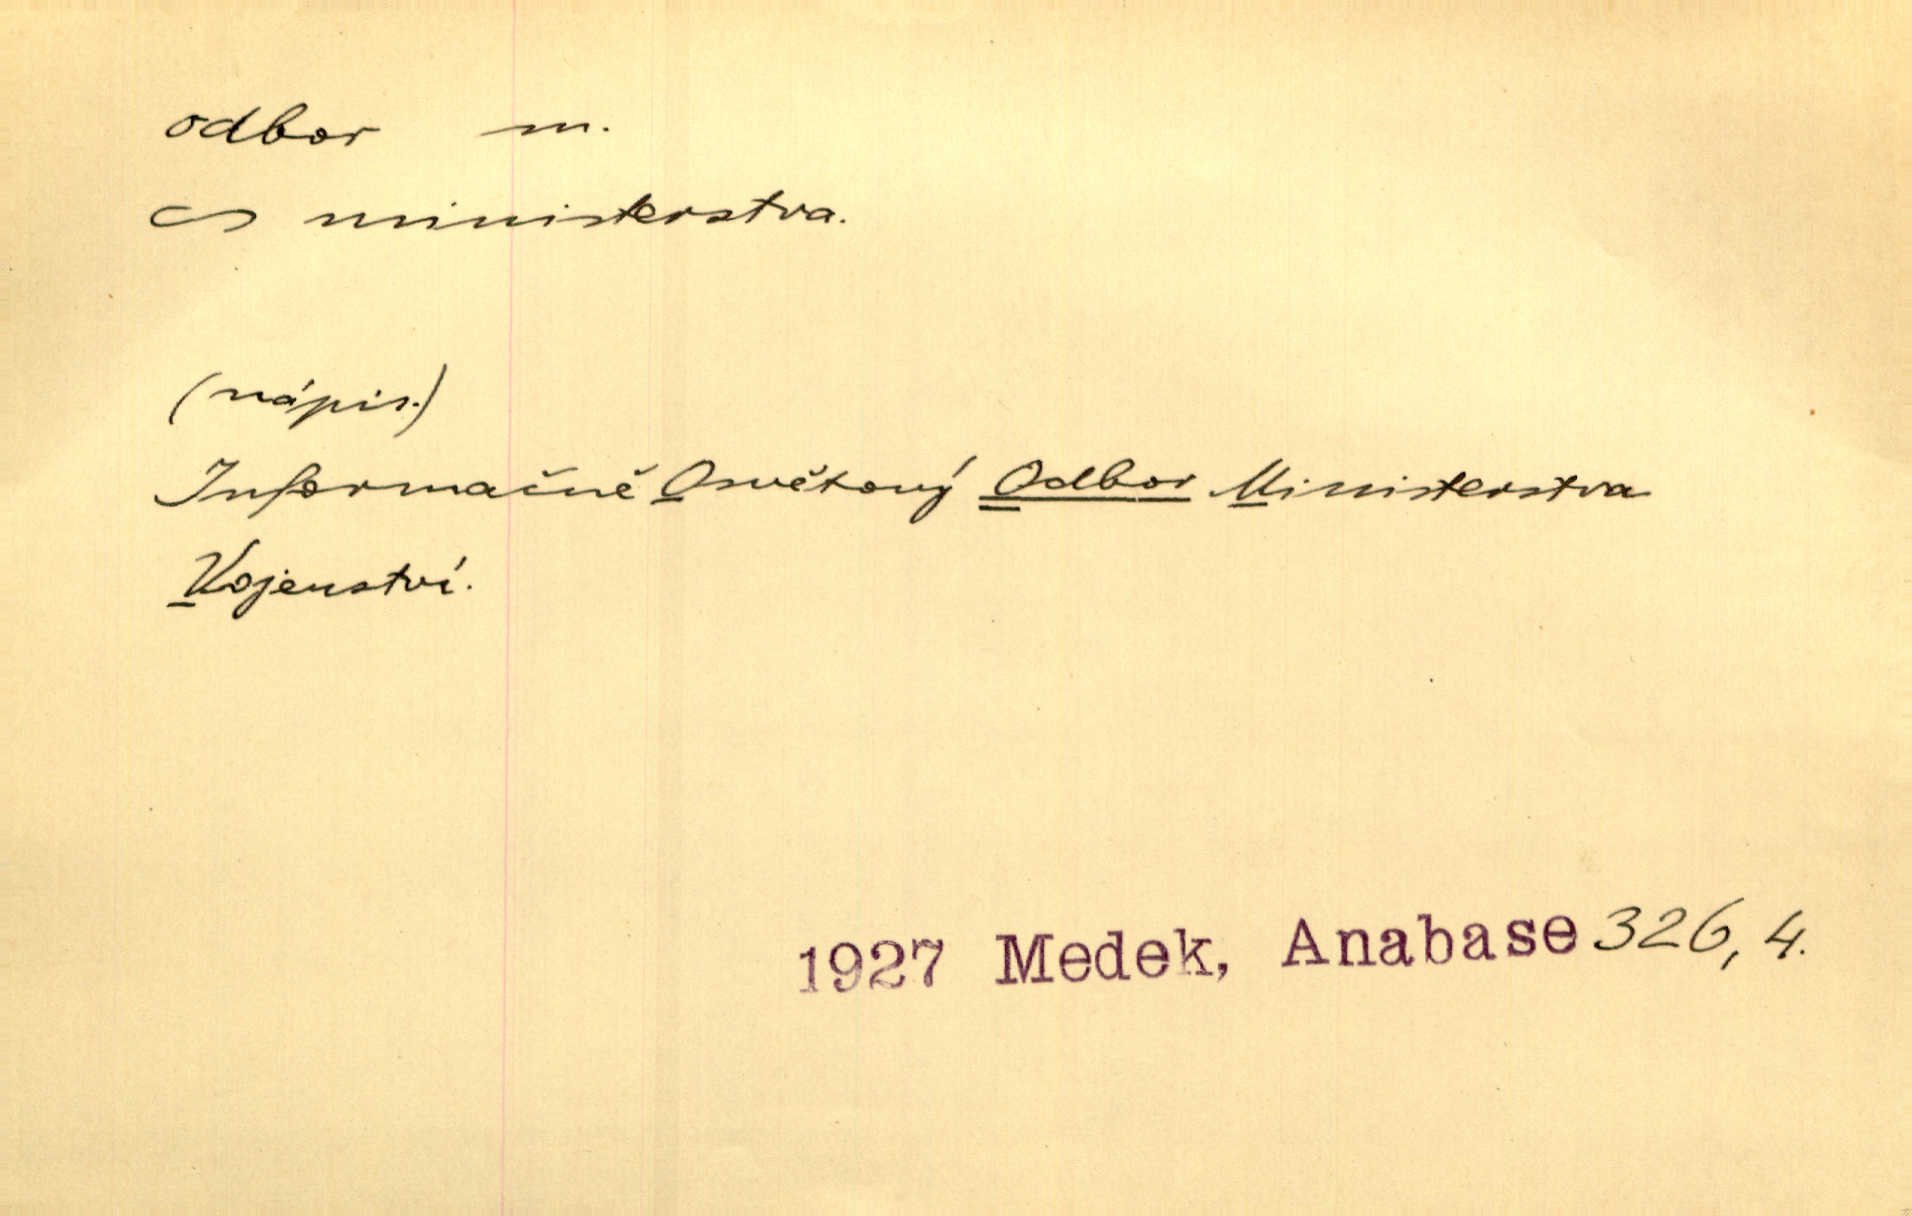 odbor m.
~ ministerstva.
(nápis.)
Informačně Osvětový Odbor Ministerstva
Vojenství.
1927 Medek, Anabase 326, 4.